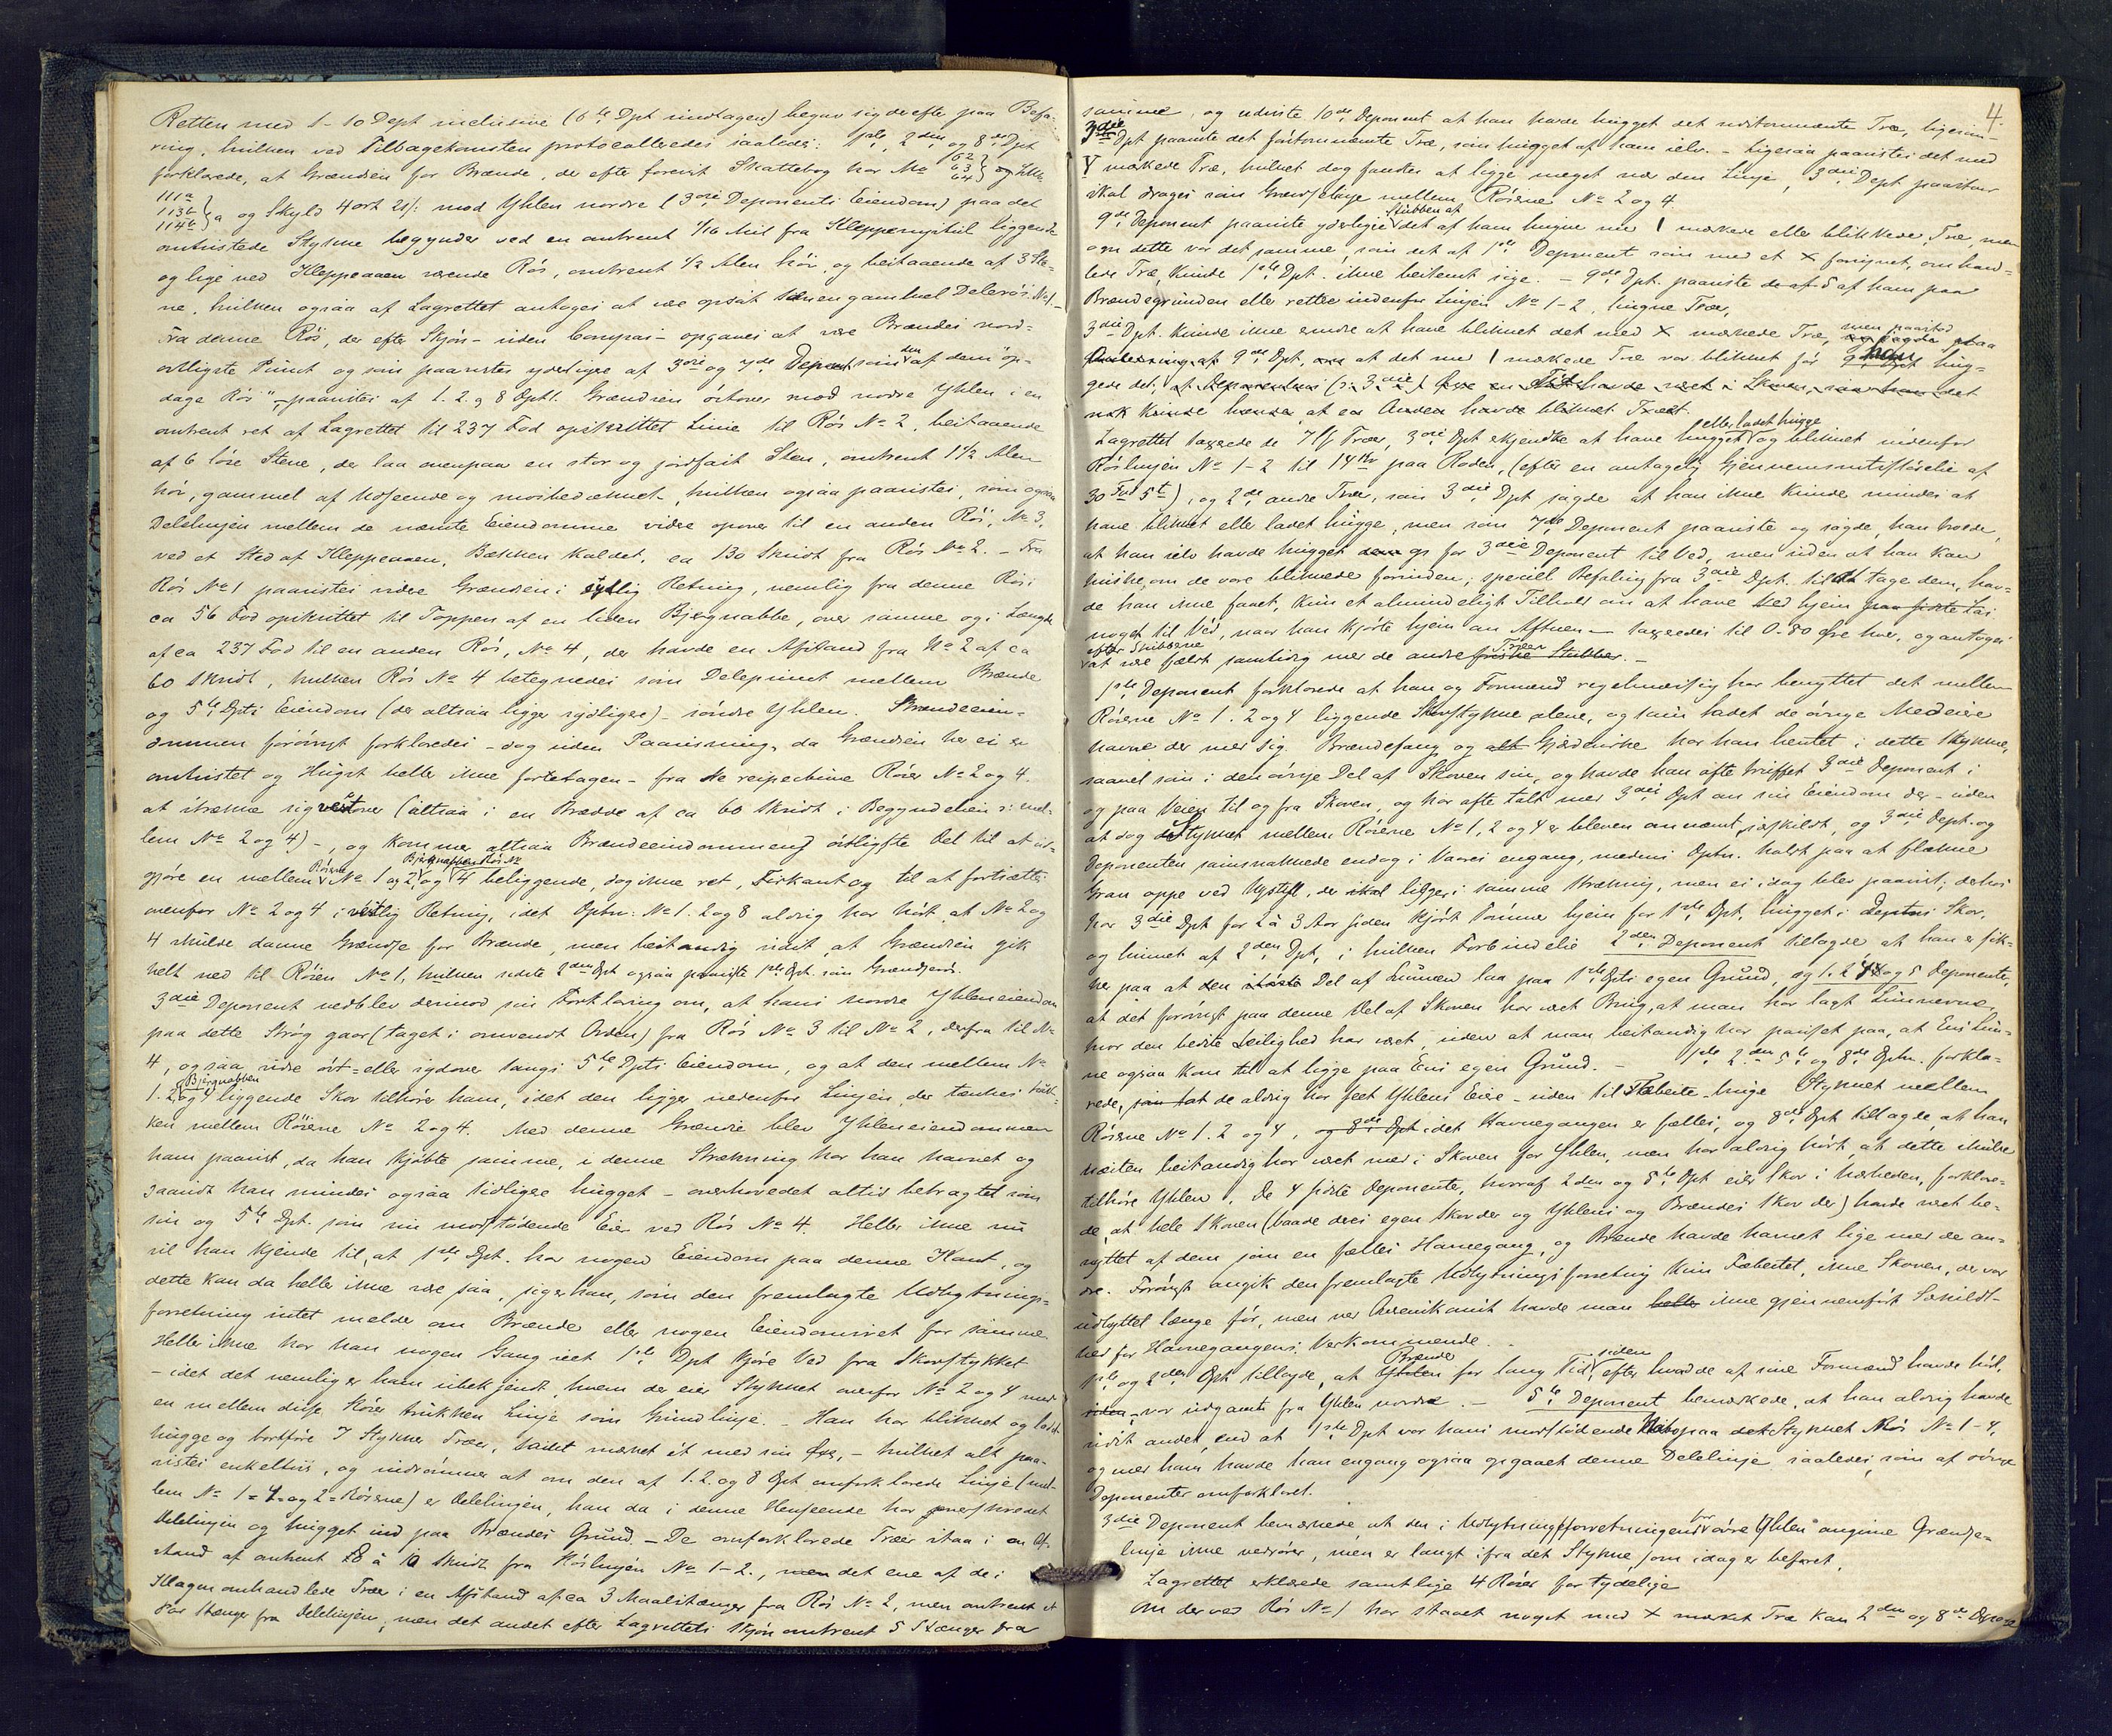 Retten med 1-10 Dept inclusive (6te Dpt indtagen) begav sig derefter paa Befa-
ring, hvilken ved Tilbagekomsten protocolleredes saaledes: 1ste, 2den og 8de Dpt
forklarede, at Grændsen for Brænde, der efter forevist Skattebog har No 62 63 64 og
111a 113b 114b a og Skyld 4 ort 21 s: mod Yhlen nordre (3die Deponents Eiendom) paa det
omtvistede Stykke begynder ved en omtrent 1/16 Mil fra Kleppemyhul liggende
og lige ved Kleppeaaen værende Rös, omtrent 1/2 Alen höi, og bestaaende af 3 Ste-
ne, hvilken ogsaa af Lagrettet antoges at være opsat som en gammel Delerös. No 1.-
Fra denne Rös, der efter Skjön - uden Compas - opgaves at være Brændes nord-
östligste Punct og som paavistes yderligere af 3die og 7de Deponent som den af dem "op-
dage Rös" - paavistes af 1. 2. og 8 Dptt. Grændsen östover mod nordre Yhlen i en
omtrent ret af Lagrettet til 237 Fod opskrittet Linie til Rös No 2, bestaaende
af 6 löse Stene, der laa ovenpaa en stor og jordfast Sten, omtrent 1 1/2 Alen
höi, gammel af Udseende og mosbedækket, hvilken ogsaa paavistes, som ogsaa
Delelinjen mellem de nævnte Eiendomme videre opover til en anden Rös, No 3,
ved et Sted af Kleppeaaen, Bækken kaldet, ca 130 Skridt fra Rös No 2. - Fra
Rös No 1 paavistes videre Grændsen i sydlig Retning, nemlig fra denne Rös i
ca 56 Fod opskrittet til Toppen af en liden Bjergnabbe, over samme og i Længde
af ca 237 Fod til en anden Rös, No 4, der havde en Afstand fra No 2 af ca
60 Skridt, hvilken Rös No 4 betegnedes som Delepunct mellem Brænde
og 5te Dpts Eiendom (der altsaa ligger sydligere) - söndre Yhlen. Brændeeien-
dommen forövrigt forklaredes - dog uden Paavisning, da Grændsen her ei er
omtvistet og Hugst heller ikke foretagen - fra de respective Röser No 2 og 4.
at strække sig vestover (altsaa i en Bredde af ca 60 Skridt i Begyndelsen s: mel-
lem No 2 og 4) -, og kommer altsaa Brændeeiendommens östligste Del til at ud-
gjöre en mellem Röserne No 1 og 2, og Bjergnabben Rös No 4 beliggende, dog ikke ret, Firkant og til at fortsætte
ovenfor No 2 og 4 i vestlig Retning, idet Dptn: No 1. 2 og 8 aldrig har hört at No 2 og
4 skulde danne Grændse for Brænde, men bestandig vidst, at Grændsen gik
helt ned til Rösen No 1, hvilken sidste 2den Dpt ogsaa paaviste 1ste Dpt. som Grændserös.
3die Deponent vedblev derimod sin Forklaring om, at hans nordre Yhleneiendom
paa dette Strög gaar (taget i omvendt Orden) fra Rös No 3 til No 2, derfra til No
4, og saa videre öst- eller sydover langs 5te Dpts Eiendom, og at den mellem No
1. 2 og 4 Bjergnabben liggende Skov tilhörer ham, idet den ligger nedenfor Linjen, der tænkes truk-
ken mellem Röserne No 2 og 4. Med denne Grændse blev Yhleneiendommen
ham paavist, da han kjöbte samme, i denne Strækning har han havnet og
saavidt han mindes ogsaa tidligere hugget - overhovedet altid betragtet som
sin og 5te Dpt. som sin modstödende Eier ved Rös No 4. Heller ikke nu
vil han kjende til, at 1ste Dpt. har nogen Eiendom paa denne Kant, og
dette kan da heller ikke være saa, siger han, som den fremlagte Udskiftnings-
forretning intet melder om Brænde eller nogen Eiendomsret for samme.
Heller ikke har han nogen Gang seet 1ste Dpt kjöre Ved fra Skovstykket
- idet det nemlig er ham ubekjendt, hvem der eier Stykket ovenfor No 2 og 4 med
en mellem disse Röser trukken Linje som Grundlinje. - Han har blinket og ladet
hugge og bortföre 7 Stykker Træer, baidet mærket et med sin Öxe, - hvilket alt paa-
vistes enkeltvis, og indrömmer at om den af 1. 2. og 8 Dpt omforklarede Linje (mel-
lem No 1 = 4 = og 2 = Röserne) er Delelinjen, han da i denne Henseende har overskredet
Delelinjen og hugget ind paa Brændes Grund. - De omforklarede Træer staa i en Af-
stand af omtrent 8 à 10 Skridt fra Röslinjen No 1-2., men det ene af de i
Klagen omhandlede Træer i en Afstand af ca 3 Maalstænger fra Rös No 2, men omtrent et
Par Stænger fra Delelinjen, men det andet efter Lagrettets Skjön omtrent 5 Stænger fra
4.
samme, og udviste 10de Deponent at han havde hugget det sidstomnævnte Træ, ligesom
3die Dpt paaviste det förstomnævnte Træ, som hugget af ham selv. - Ligesaa paavistes det med
Y mærkede Træ, hvilket dog fandtes at ligge meget nær den Linje, 3die Dept paastaar
skal drages som Grændselinje mellem Röserne No 2 og 4.
9de Deponent paaviste yderligere Stubben af det af ham hugne med 1 mærkede eller blinkede Træ, men
om dette var det samme, som det af 1ste Deponent som med et X forsynet, omhand-
lede Træ, kunde 1ste Dpt. ikke bestemt sige. - 9de Dpt. paaviste de af 5 af ham paa
Brændegrunden eller rettere indenfor Linjen No 1-2, hugne Træer,
3die Dpt. kunde ikke erindre at have blinket det med X mærkede Træ, men paastod paa
Anledning af 9de Dpt, at det med 1 mærkede Træ var blinket för han hug-
gede det,
nok kunde hænde, at en Anden havde blinket Træet.
Lagrettet taxerede de 7 Træer, 3die Dpt erkjendte at have hugget eller ladet hugge og blinket indenfor
Röslinjen No 1-2 til 14 Kr paa Roden, (efter en antagelig Gjennemsnitsstörrelse af
30 Fod 5t), og 2de andre Træer, som 3die Dpt sagde at han ikke kunde mindes at
have blinket eller ladet hugge, men som 7de Deponent paaviste og sagde, han troede,
at han selv havde hugget dem op for 3die Deponent til Ved, men uden at han kan
huske, om de vare blinkede forinden; speciel Befaling fra 3die Dpt. til at tage dem, hav-
de han ikke faaet, kun et almindeligt Tilhold om at have Ved hjem
noget til Ved, naar han kjörte hjem om Aftnen - taxeredes til 0.80 Öre hver, og antoges
efter Stubberne at være fældt samtidig med de andre Træer. -
1ste Deponent forklarede at han og Formænd regelmæssig har benyttet det mellem
Röserne No 1. 2 og 4 liggende Skovstykke alene, og kun ladet de övrige Medeiere
havne der med sig. Brændefang og Gjærdevirke har han hentet i dette Stykke,
saavel som i den övrige Del af Skoven sin, og havde han ofte truffet 3die Deponent i
og paa Veien til og fra Skoven, og har ofte talt med 3die Dpt om sin Eiendom der - uden
at dog Stykket mellem Röserne No 1, 2 og 4 er bleven omnævnt særskildt, og 3die Dept. og
Deponenten samsnakkede endog i Vaares engang, medens Dptn. holdt paa at flække
Gran oppe ved Myhyll, der skal ligge i samme Strækning, men ei idag blev paavist; derhos
har 3die Dpt for 2 à 3 Aar siden kjört Tömmer hjem for 1ste Dpt, hugget i Deptns Skov,
og lunnet af 2den Dpt, i hvilken Forbindelse 2den Deponent tillagde at han er sik-
ker paa at den Del af Lunnen laa paa 1ste Dpts egen Grund, og 1. 2 4 og 5 Deponenter,
at det forövrigt paa denne Del af Skoven har været Brug, at man har lagt Lunnerne,
hvor den bedste Leilighed har været, uden at man bestandig har passet paa, at Ens Lun-
ne ogsaa kom til at ligge paa Ens egen Grund. - 1ste 2den 5te og 8de Dptn. forkla-
rede, at de aldrig har seet Yhlens Eiere - uden til Fæbeite - bruge Stykket mellem
Röserne No 1. 2 og 4, og 8de Dpt idet Havnegangen er fælles; og 8de Dpt tillagde, at han
næsten bestandig har været med i Skoven for Yhlen, men har aldrig hört, at dette skulde
tilhöre Yhlen. De 4 sidste Deponenter, hvoraf 2den og 5te Dpt eier Skov i Nærheden, forklare-
de at hele Skoven (baade deres egen Skov der og Yhlens og Brændes Skov der) havde været be-
nyttet af dem som en fælles Havnegang, og Brænde havde havnet lige med de an-
dre. Forövrigt angik den fremlagte Udskiftningsforretning kun Fæbeitet, ikke Skoven, der var
udskiftet længe för, men ved Overenskomst havde man ikke gjennemfört Særskildt-
hed for Havnegangens Vedkommende.
1ste og 2den Dpt tillagde, at Brænde for lang Tid siden, efter hvad de af sine Formænd havde hört,
var udgaaet fra Yhlen nordre. - 5te Deponent bemærkede, at han aldrig havde
vidst andet, end at 1ste Dpt var hans modstödende Nabo paa det Stykket Rös No 1-4,
og med ham havde han engang ogsaa opgaaet denne Delelinje saaledes, som af övrige
Deponenter omforklaret.
3die Deponent bemærkede at den i Udskiftningsforretningen for "övre Yhlen" angivne Grændse-
linje ikke vedrörer, men er langt ifra det Stykke, som idag er befaret.
Lagrettet erklærede samtlige 4 Röser for tydelige
Om der ved Rös No 1 har staaet noget med X mærket Træ kan 2den og 8de Depon